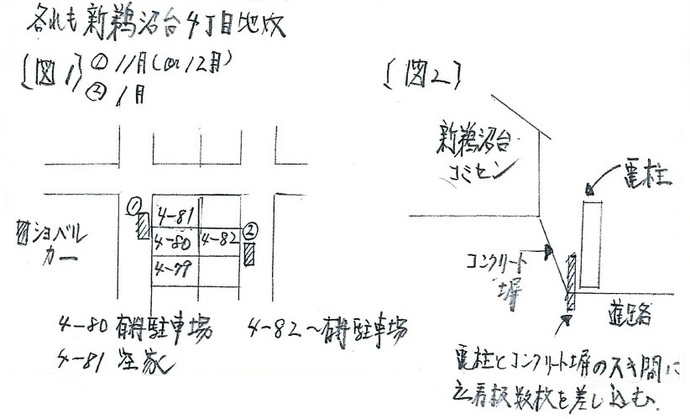 各れも新鵜沼台4丁目地域
[図1] ① 11月(or 12月)
② 1月
①
4-81
4-80
4-82
②
4-79
ショベル
カー
4-80 有料駐車場
4-82〜有料駐車場
4-81 空家
[図2]
新鵜沼台
コミセン
電柱
コンクリート
塀
道路
電柱とコンクリート塀のスキ間に
立看板数枚を差し込む。